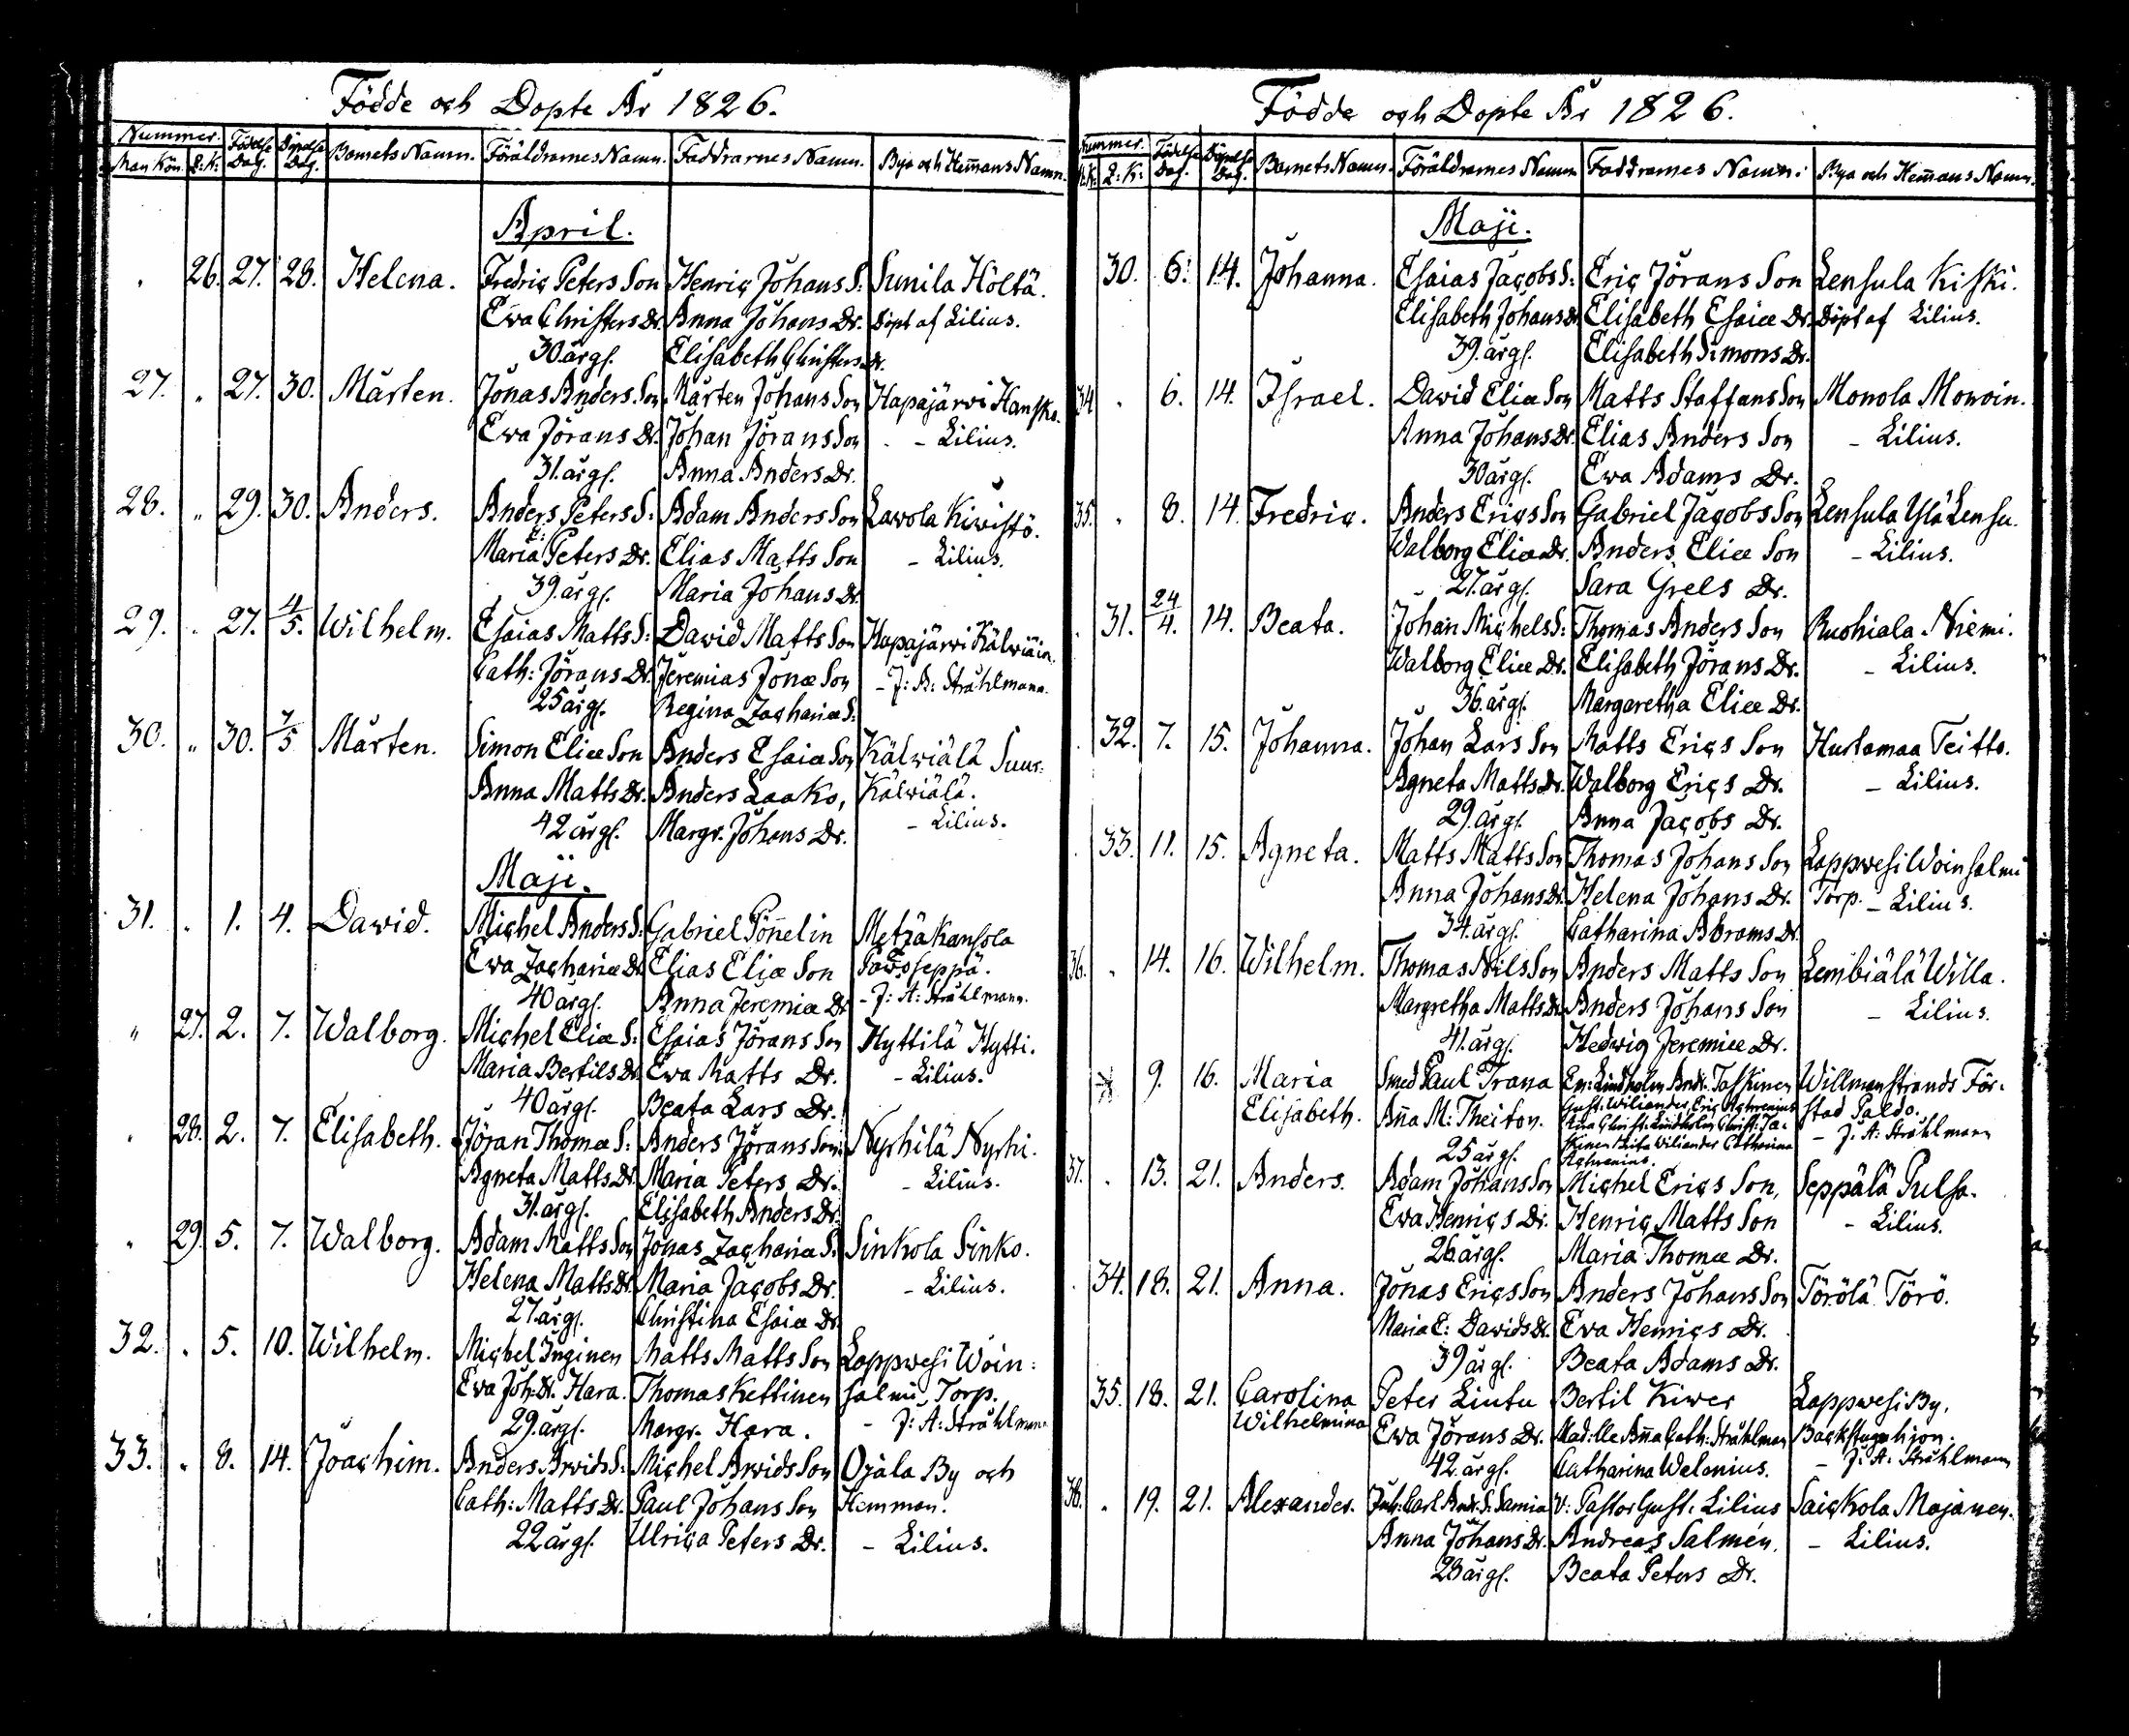 Födde och Dopte År 1826.
Nummer. Födelse Dag. Döpelse Dag. Barnets Namn. Föräldrarnes Namn. Faddrarnes Namn. Bya och Hem̄ans Namn.
Man Kön. Q: K:
April.
26. 27. 28. Helena. Fredric Peters Son Henric Johans S: Sunila Höltä.
Ewa Christers Dr. Anna Johans Dr. Döpt af Lilius.
30 årgl. Elisabeth Christers Dr.
27. „ 27. 30. Mårten. Jonas Anders Son Mårten Johans Son Hapajärwi Hansko.
Ewa Jörans Dr. Johan Jörans Son - Lilius.
31. årgl. Anna Anders Dr.
28. „ 29. 30. Anders. Anders Peters S: Adam Anders Son Lawola Kiwistö.
Maria Peters Dr. Elias Matts Son - Lilius.
39. årgl. Maria Johans Dr.
29. „ 27. 4/5. Wilhelm. Esaias Matts S: David Matts Son Hapajärwi Kälwiäin.
Cath: Jörans Dr. Jeremias Jonæ Son - J: A: Stråhlmann.
25 årgl. Regina Zachariæ S:
30. „ 30. 7/5 Mårten. Simon Eliæ Son Anders Esaiæ Son Kälwiälä Suur-
Anna Matts Dr. Anders Laako, Kälwiälä.
42 årgl. Margr. Johans Dr. - Lilius.
Maji.
31. „ 1. 4. David. Michel Anders S: Gabriel Pön̄elin Metzäkansola
Ewa Zachariæ Dr Elias Eliæ Son Pawsseppä.
40 årgl. Anna Jeremiæ Dr - J: A: Stråhlmann.
„ 27. 2. 7. Walborg. Michel Eliæ S: Esaias Jörans Son Hyttilä Hytti.
Maria Bertils Dr. Ewa Matts Dr. - Lilius.
40 årgl. Beata Lars Dr.
28. 2. 7. Elisabeth. Jöran Thomæ S: Anders Jörans Son Nyrhilä Nyrhi.
Agneta Matts Dr. Maria Peters Dr. - Lilius.
31. årgl. Elisabeth Anders Dr.
29. 5. 7. Walborg. Adam Matts Son Jonas Zachariæ S: Sinkola Sinko.
Helena Matts Dr. Maria Jacobs Dr. - Lilius.
27. årgl. Christina Esaiæ Dr.
32. „ 5. 10. Wilhelm. Michel Inginen Matts Matts Son Lappwesi Woin:
Ewa Joh: Dr. Hara. Thomas Kettinen salmi Torp.
29. årgl. Margr. Hara. - J: A: Stråhlmann
33. „ 8. 14. Joachim. Anders Arvids S: Michel Arvids Son Ojala By och
Cath: Matts Dr. Paul Johans Son Hemman.
22 årgl. Ulrica Peters Dr. - Lilius.
Födde och Dopte År 1826.
Nummer. Födelse Dag. Döpelse Dag. Barnets Namn. Föräldrarnes Namn Faddrarnes Namn: Bya och Hem̄ans Namn.
M.K. Q: K:
Maji.
30. 6. 14. Johanna. Esaias Jacobs S: Eric Jörans Son Lensula Kiski.
Elisabeth Johans Dr Elisabeth Esaiæ Dr. Döpt af Lilius.
39. årgl. Elisabeth Simons Dr.
34 „ 6. 14. Israel. David Eliæ Son Matts Staffans Son Monola Monoin.
Anna Johans Dr. Elias Anders Son - Lilius.
30 årgl. Ewa Adams Dr.
35. „ 8. 14. Fredric. Anders Erics Son Gabriel Jacobs Son Lensula Ylä Lensu.
Walborg Eliæ Dr. Anders Eliæ Son - Lilius.
27. årgl. Sara Grels Dr.
31. 24/4. 14. Beata. Johan Michels S: Thomas Anders Son Ruohiala Niemi.
Walborg Eliæ Dr. Elisabeth Jörans Dr. - Lilius.
36. årgl. Margaretha Eliæ Dr.
32. 7. 15. Johanna. Johan Lars Son Matts Erics Son Hurtamaa Teitto.
Agneta Matts Dr. Walborg Erics Dr. - Lilius.
29. årgl. Anna Jacobs Dr.
33. 11. 15. Agneta. Matts Matts Son Thomas Johans Son Lappwesi Woinsalmi
Anna Johans Dr. Helena Johans Dr. Torp. - Lilius.
34. årgl. Catharina Abrams Dr.
36. „ 14. 16. Wilhelm. Thomas Nils Son Anders Matts Son Lembiälä Willa.
Margretha Matts Dr. Anders Johans Son - Lilius.
41. årgl. Hedwig Jeremiæ Dr.
9. 16. Maria Smed Paul Trana Em: Lindholm Andr. Taskinen Willmanstrands För-
Elisabeth. An̄a M: Theiton. Gust: Wiliander Eric Agrenius stad Paldo.
25 årgl. Christ: Lindholm Christ: Tas- - J: A: Stråhlmann
kinen Wiliander Catharina
Agrenius.
37. „ 13. 21. Anders. Adam Johans Son Michel Erics Son, Seppälä Pulsa.
Ewa Henrics Dr. Henric Matts Son - Lilius.
26. årgl. Maria Thomæ Dr.
34. 18. 21. Anna. Jonas Erics Son Anders Johans Son Törölä Törö.
Maria E: Davids Dr. Ewa Henrics Dr.
39 årgl. Beata Adams Dr.
35. 18. 21. Carolina Peter Lintu Bertil Kiwer Lappwesi By,
Wilhelmina Ewa Jörans Dr. Mad:lle An̄a Cath: Stråhlman Backstuguhjon.
42. årgl. Catharina Welonius. - J: A: Stråhlmann
38. „ 19. 21. Alexander. Carl Andr. S. Samia V: Pastor Gust: Lilius Saickola Majanen.
Anna Johans Dr. Andreas Salmén. - Lilius.
28 årgl. Beata Peters Dr.